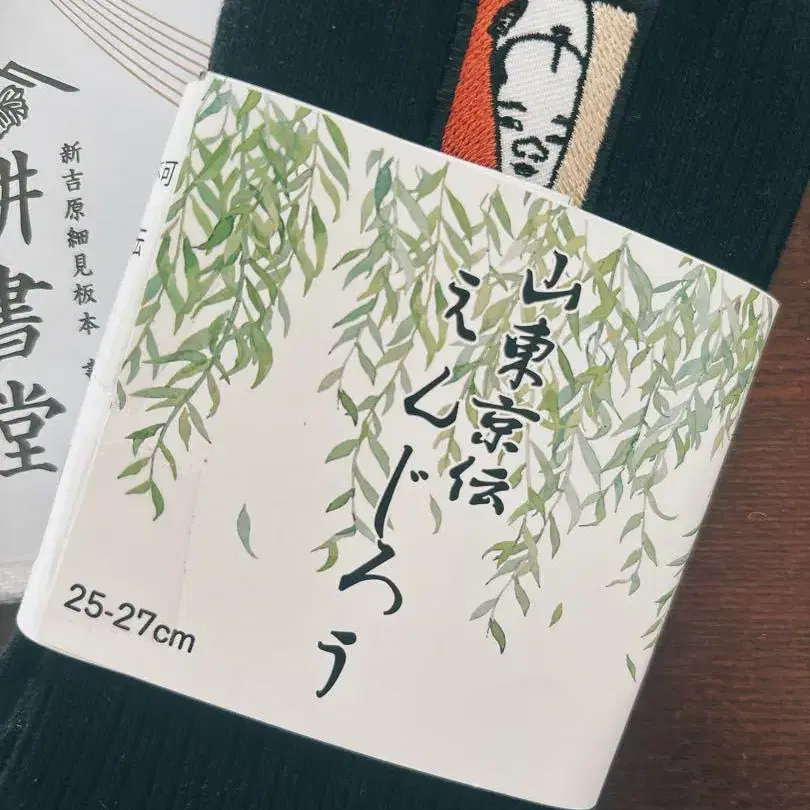 山東京伝
えんじろう
25-27cm
新吉原細見板本
耕書堂